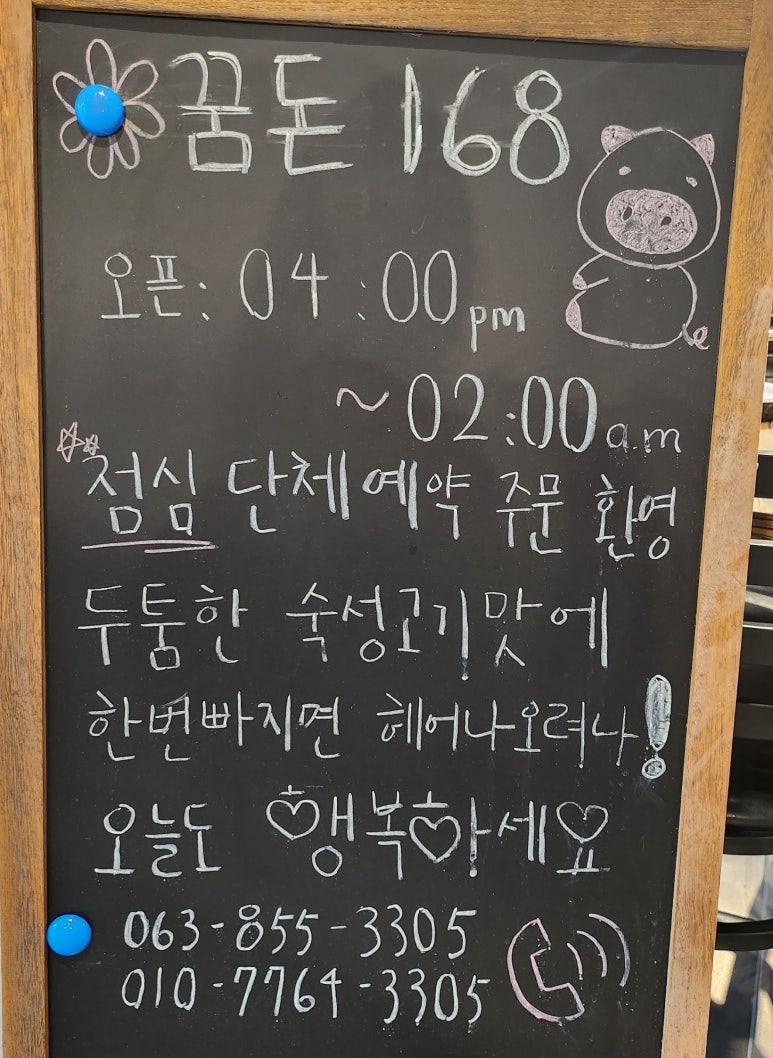 꿈돈 168
오픈: 04:00 pm
~ 02:00 a.m
점심 단체 예약 주문 환영
두툼한 숙성고기맛에
한번빠지면 헤어나오려나!
오늘도 행복하세요
063-855-3305
010-7764-3305